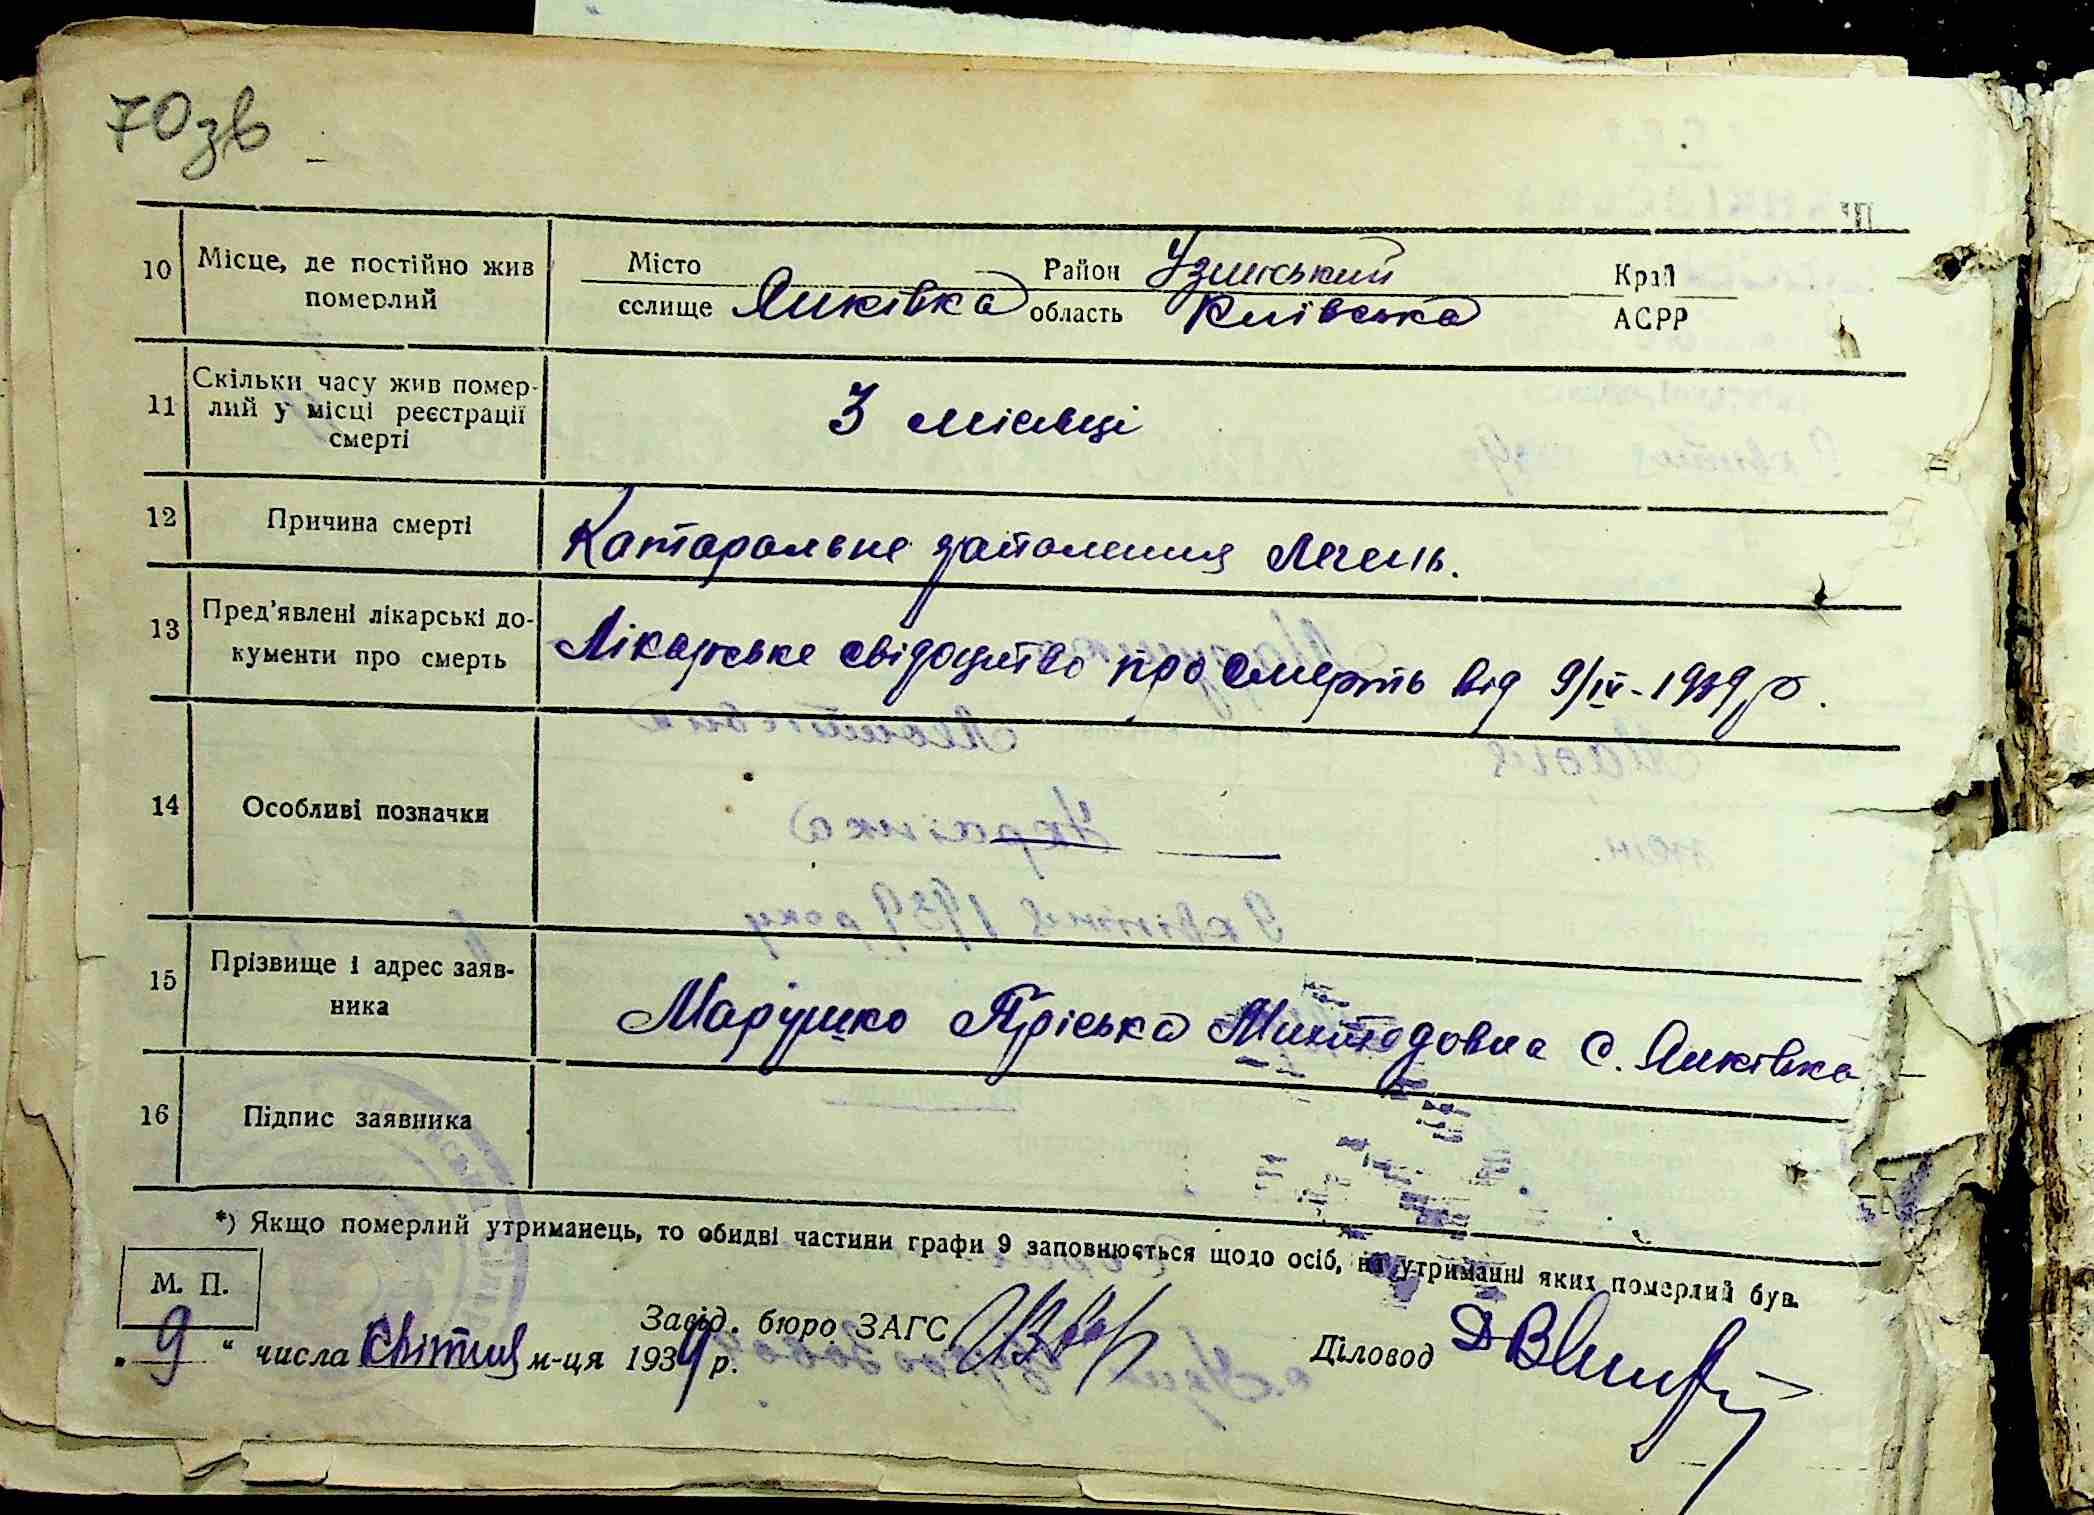 70зв
10 Місце, де постійно жив померлий
Місто Район Узинський Край
селище Янківка область Київська АСРР
11 Скільки часу жив помер-
лий у місці реєстрації
смерті
3 місяці
12 Причина смерті Катаральне запалення легень.
13 Пред'явлені лікарські до-
кументи про смерть
Лікарське свідоцтво про смерть від 9/IV-1939 р.
14 Особливі позначки
15 Прізвище і адрес заяв-
ника
Марушко Пріська с. Янківка
16 Підпис заявника
*) Якщо померлий утриманець, то обидві частини графи 9 заповнюється щодо осіб, на утриманні яких померлий був.
М. П.
Завід. бюро ЗАГС
Діловод
„ 9 “ числа квітня м-ця 1939 р.